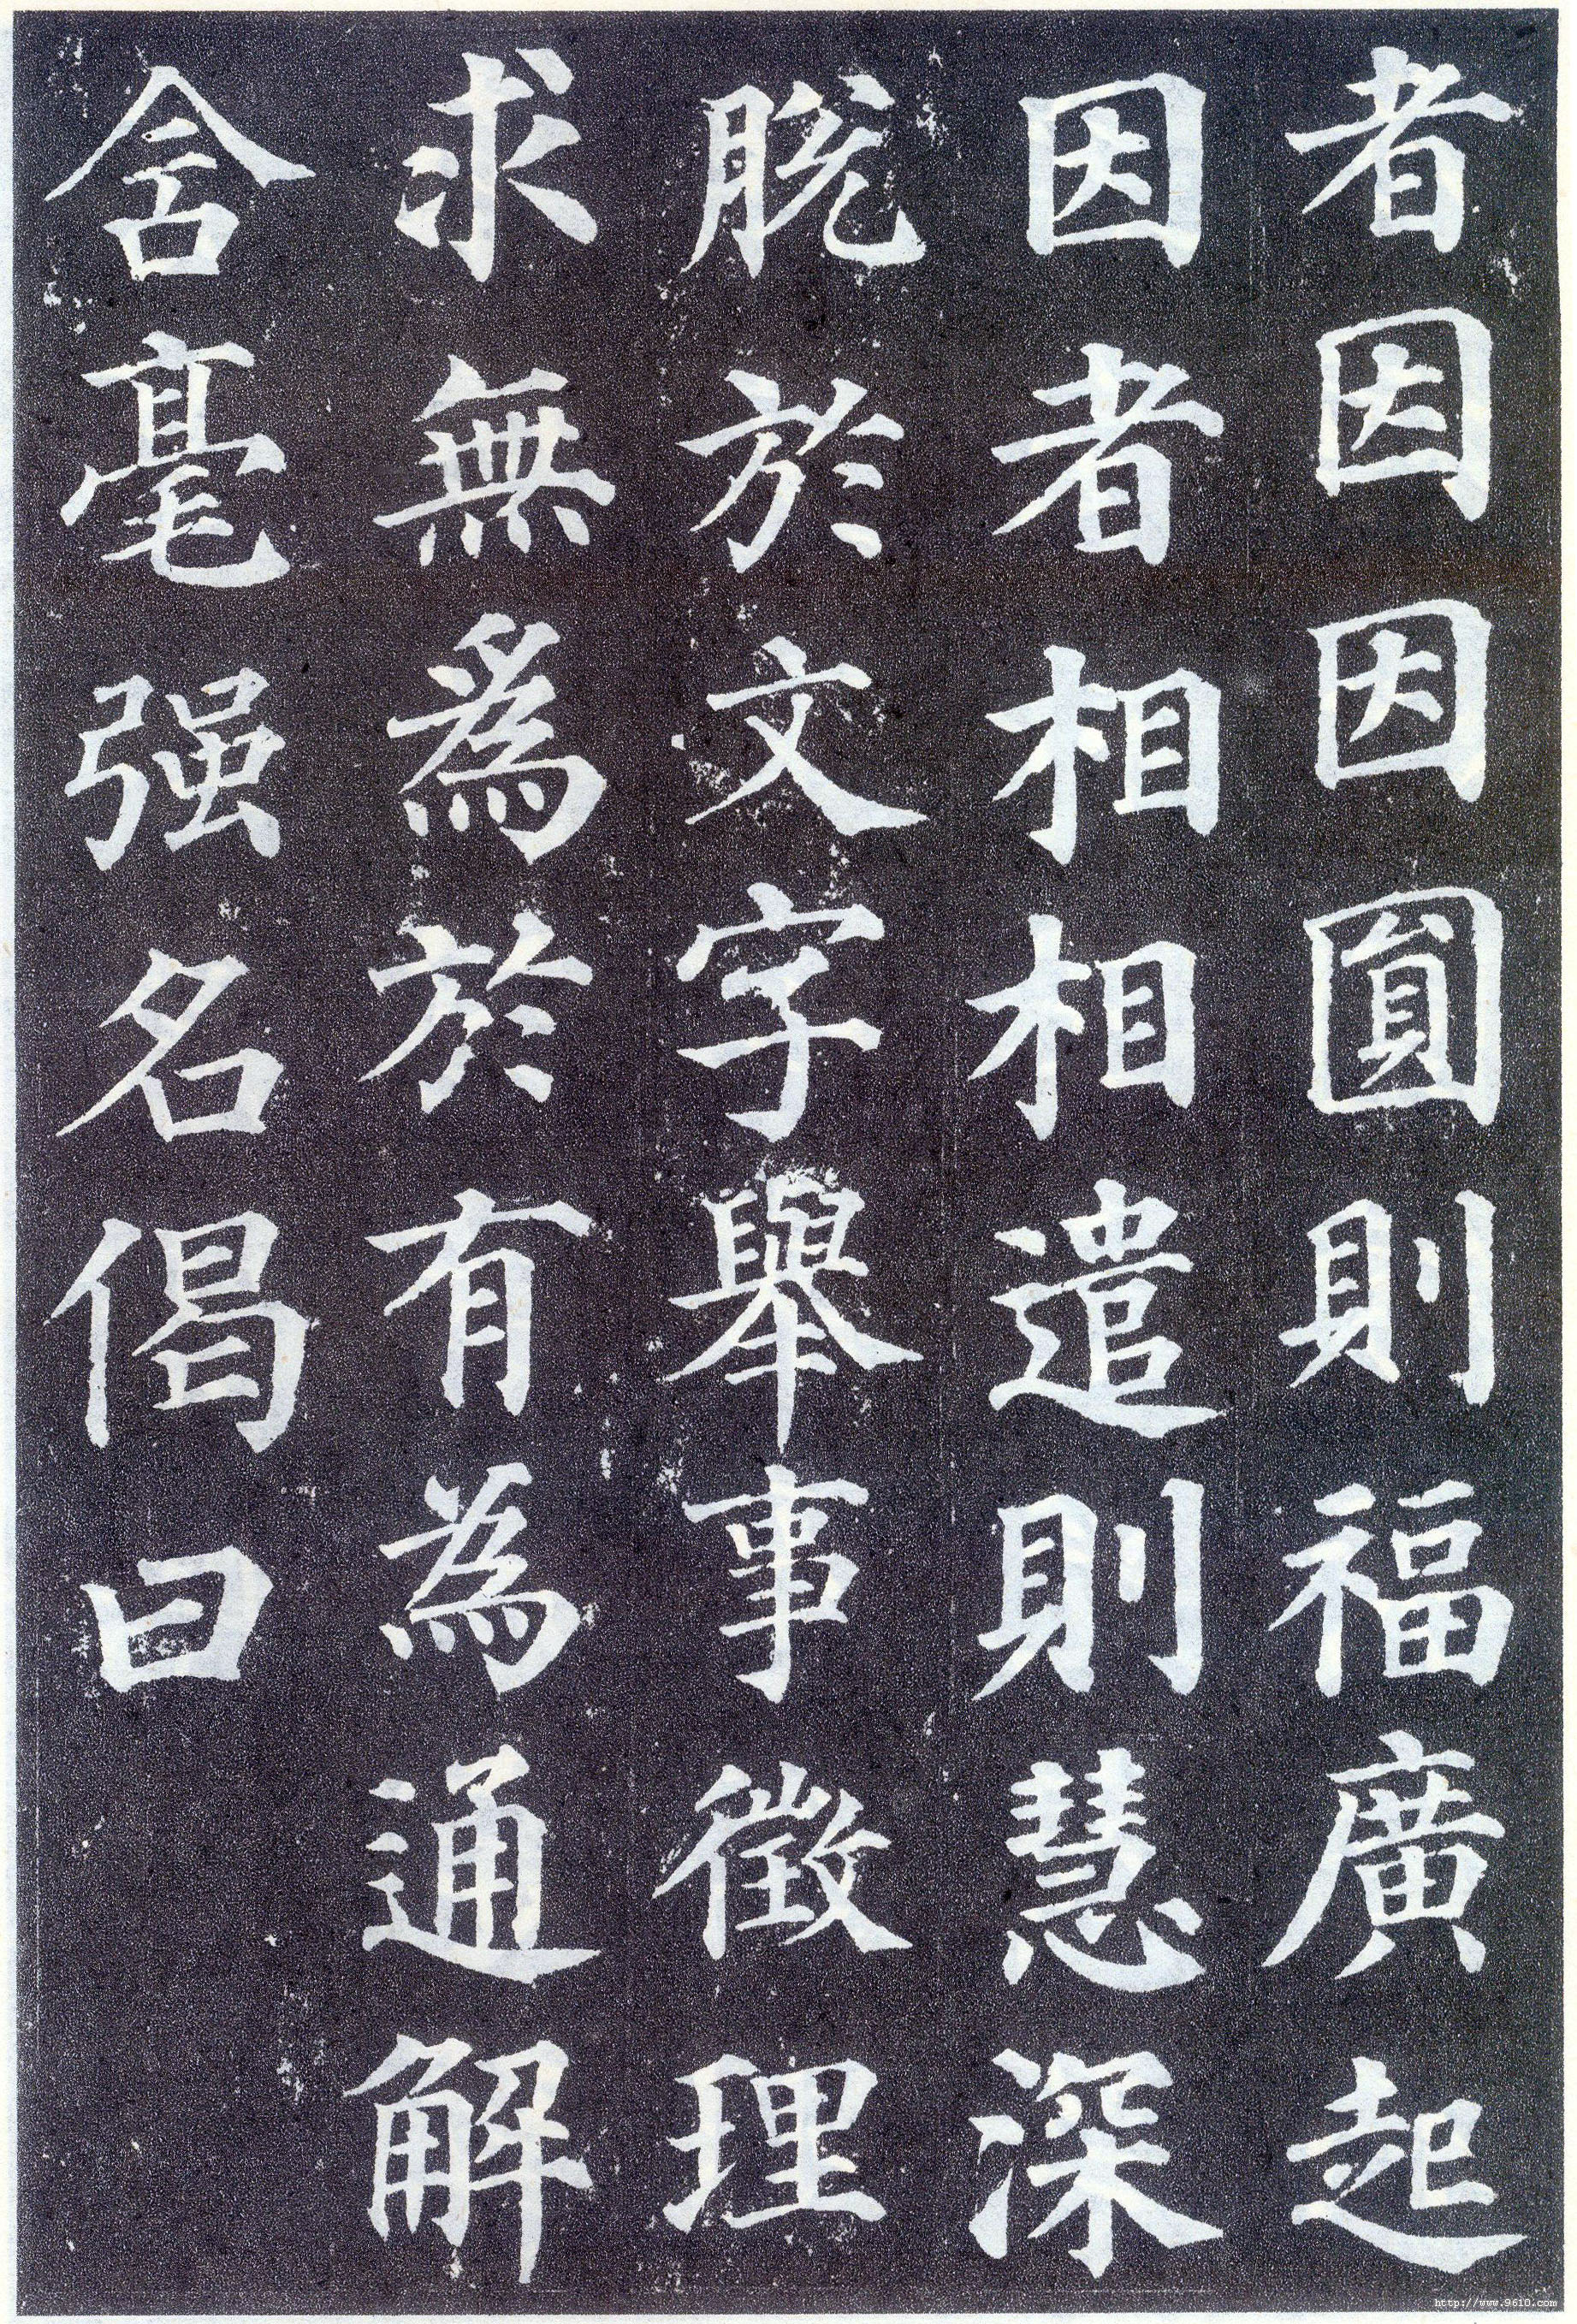 者因因圓則福廣起
因者相相遣則慧深
脫於文字舉事徵理
求無為於有為通解
含毫强名偈曰
http://www.9610.com